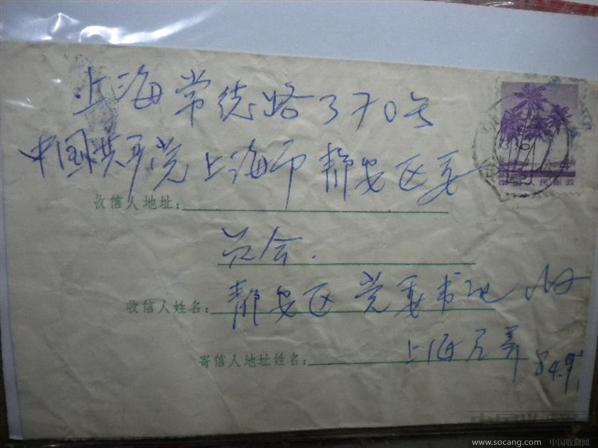 上海常德路370号
中国共产党上海市静安区委
收信人地址:
员会.
收信人姓名: 静安区党委书记
寄信人地址姓名: 上海
84.9
www.socang.com 中国收藏网